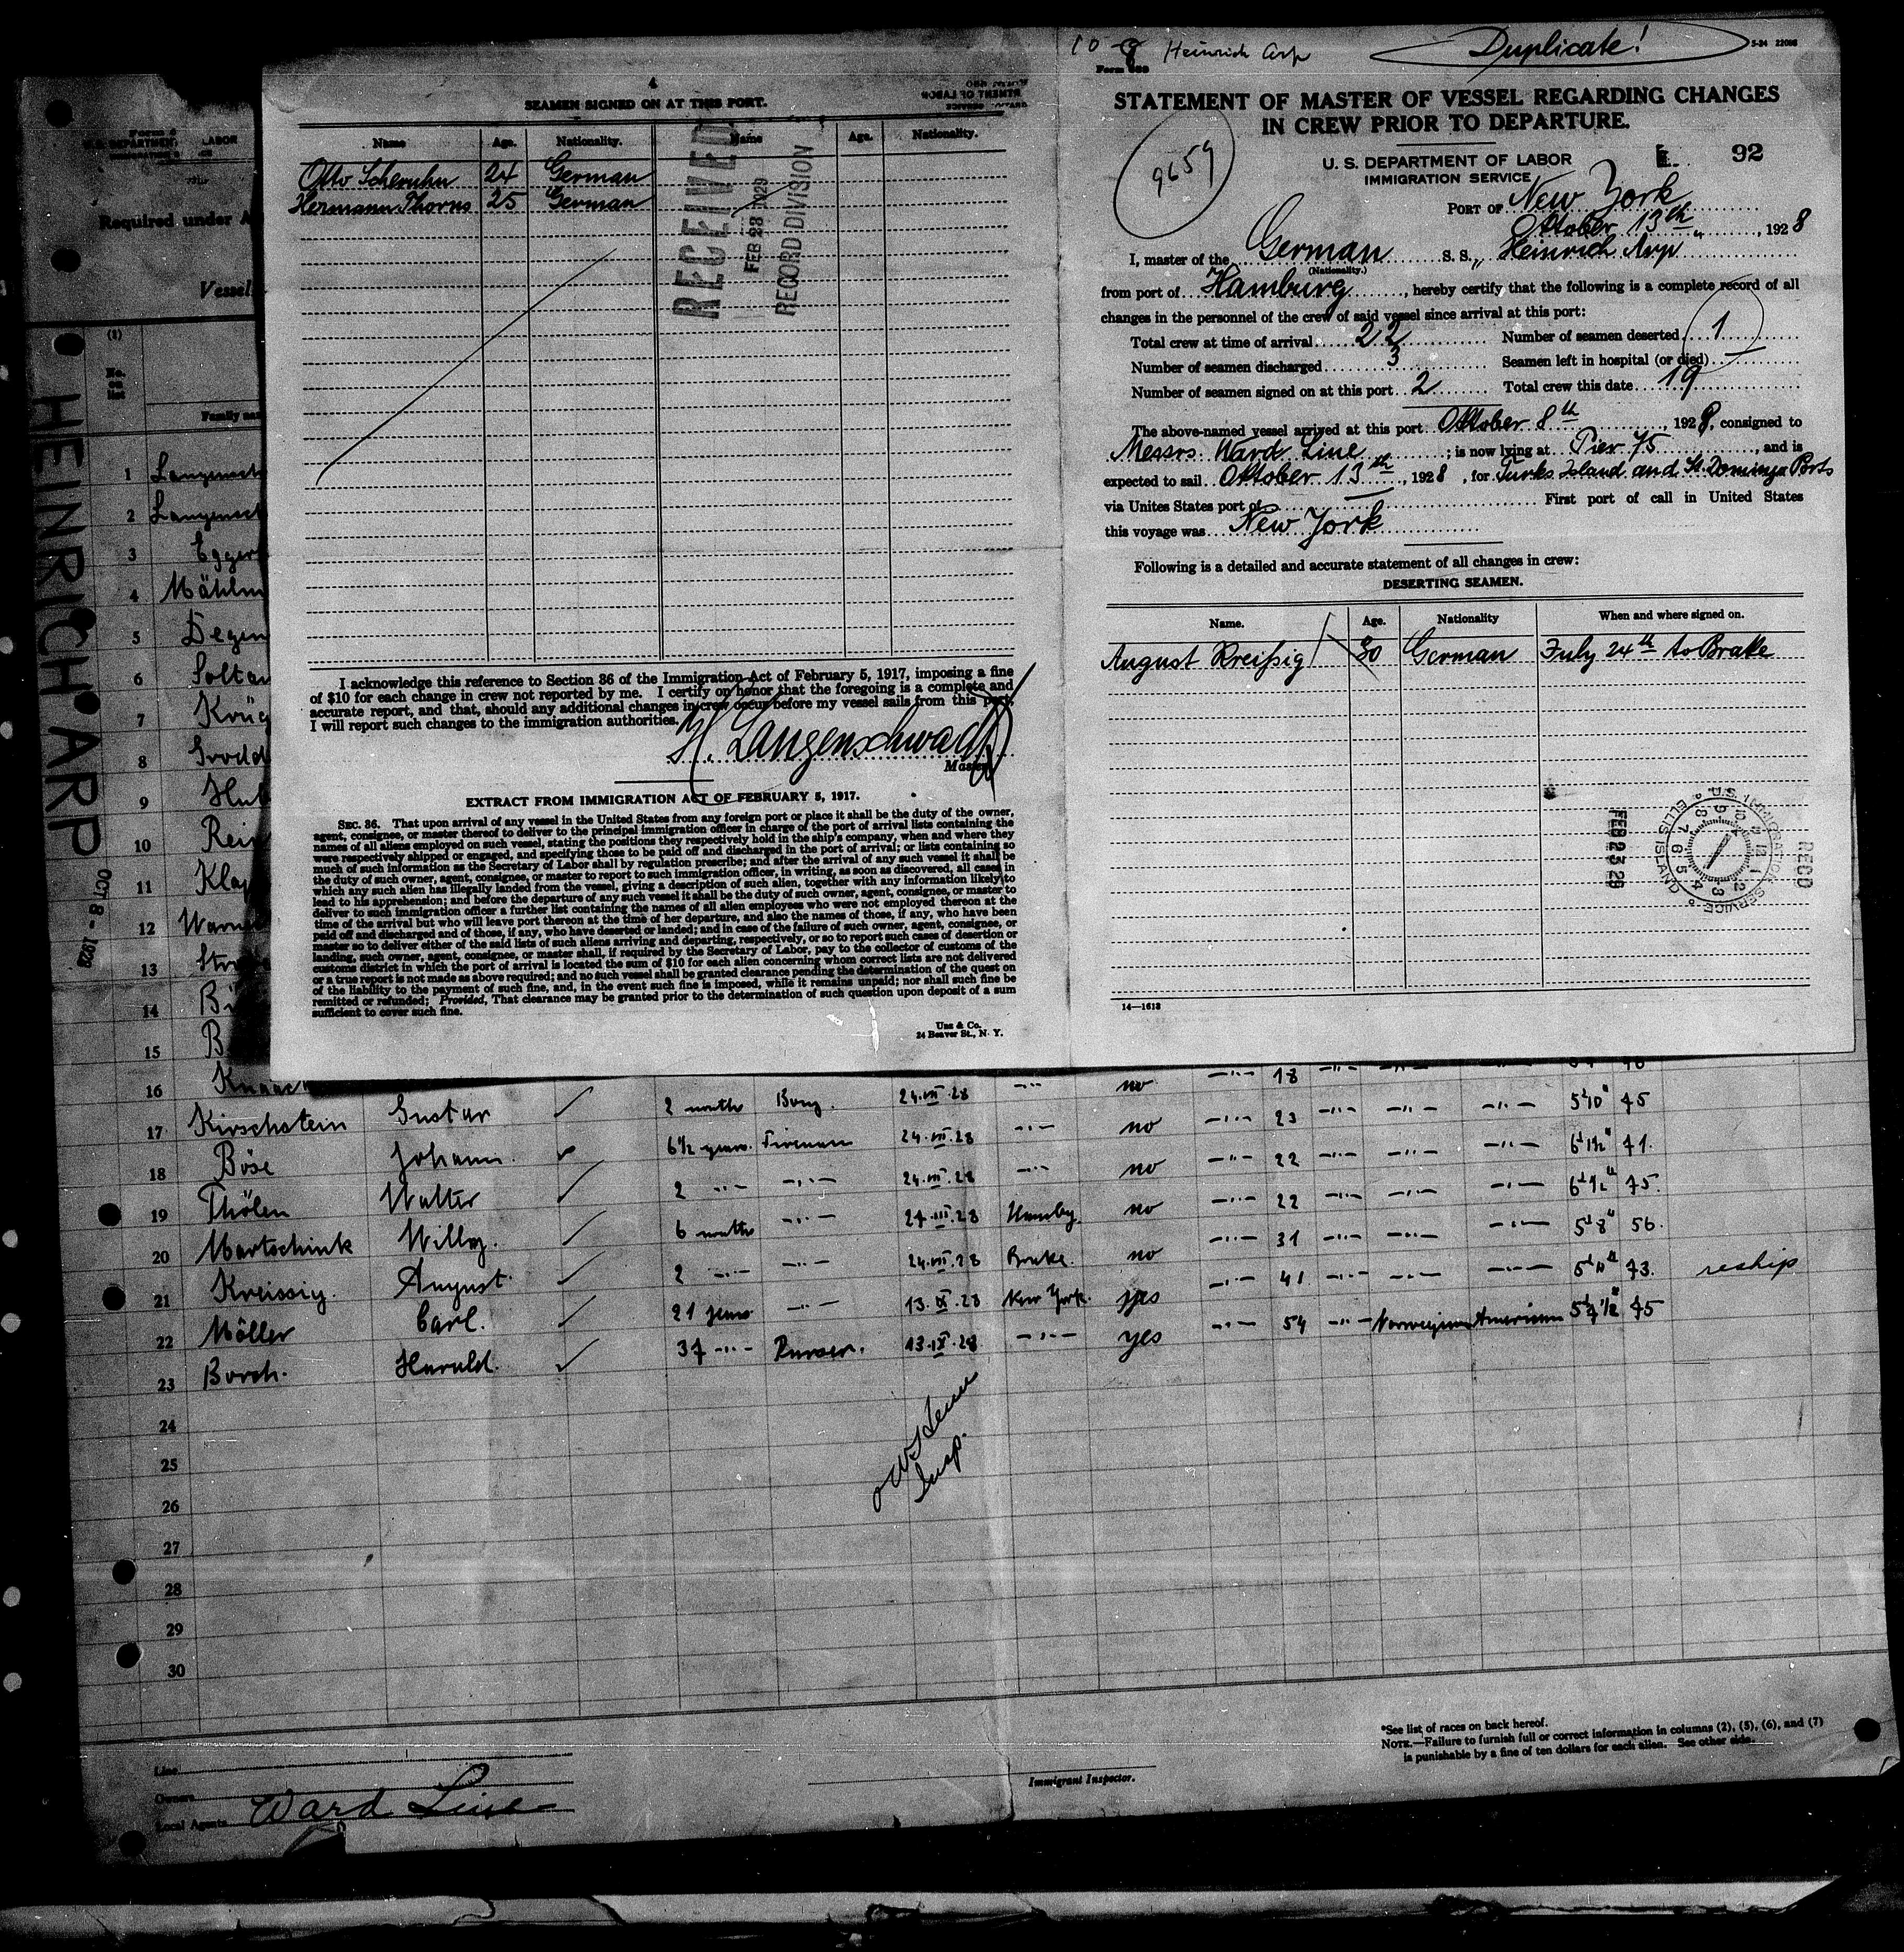 10-8 Heinrich Arp
Duplicate!
5-24
4
SEAMEN SIGNED ON AT THIS PORT.
Name Age. Nationality. Name Age. Nationality.
Otto Scheruhn 24 German
Hermann Thorns 25 German
RECEIVED
FEB 28 1929
RECORD DIVISION
I acknowledge this reference to Section 36 of the Immigration Act of February 5, 1917, imposing a fine
of $10 for each change in crew not reported by me. I certify on honor that the foregoing is a complete and
accurate report, and that, should any additional changes in crew occur before my vessel sails from this port,
I will report such changes to the immigration authorities.
H. Langenschwadt
Master
EXTRACT FROM IMMIGRATION ACT OF FEBRUARY 5, 1917.
SEC. 36. That upon arrival of any vessel in the United States from any foreign port or place it shall be the duty of the owner,
agent, consignee, or master thereof to deliver to the principal immigration officer in charge of the port of arrival lists containing the
names of all aliens employed on such vessel, stating the positions they respectively hold in the ship's company, when and where they
were respectively shipped or engaged, and specifying those to be paid off and discharged in the port of arrival; or lists containing so
much of such information as the Secretary of Labor shall by regulation prescribe; and after the arrival of any such vessel it shall be
the duty of such owner, agent, consignee, or master to report to such immigration officer, in writing, as soon as discovered, all cases in
which any such alien has illegally landed from the vessel, giving a description of such alien, together with any information likely to
lead to his apprehension; and before the departure of any such vessel it shall be the duty of such owner, agent, consignee, or master to
deliver to such immigration officer a further list containing the names of all alien employees who were not employed thereon at the
time of the arrival but who will leave port thereon at the time of her departure, and also the names of those, if any, who have been
paid off and discharged and of those, if any, who have deserted or landed; and in case of the failure of such owner, agent, consignee, or
master so to deliver either of the said lists of such aliens arriving and departing, respectively, or so to report such cases of desertion or
landing, such owner, agent, consignee, or master shall, if required by the Secretary of Labor, pay to the collector of customs of the
customs district in which the port of arrival is located the sum of $10 for each alien concerning whom correct lists are not delivered
or a true report is not made as above required; and no such vessel shall be granted clearance pending the determination of the quest on
of the liability to the payment of such fine, and, in the event such fine is imposed, while it remains unpaid; nor shall such fine be
remitted or refunded; Provided, That clearance may be granted prior to the determination of such question upon deposit of a sum
sufficient to cover such fine.
Unz & Co.
24 Beaver St., N. Y.
STATEMENT OF MASTER OF VESSEL REGARDING CHANGES
IN CREW PRIOR TO DEPARTURE.
9659
U. S. DEPARTMENT OF LABOR
IMMIGRATION SERVICE
92
PORT OF New York
Oktober 13th, 1928
I, master of the German S. S. „Heinrich Arp"
(Nationality.)
from port of Hamburg, hereby certify that the following is a complete record of all
changes in the personnel of the crew of said vessel since arrival at this port:
Total crew at time of arrival 22 Number of seamen deserted 1
Number of seamen discharged 3 Seamen left in hospital (or died) —
Number of seamen signed on at this port 2 Total crew this date 19
The above-named vessel arrived at this port Oktober 8th, 1928, consigned to
Messrs. Ward Line; is now lying at Pier 75, and is
expected to sail Oktober 13th, 1928, for Turks Island and St. Domingo Ports
via Unites States port of — First port of call in United States
this voyage was New York
Following is a detailed and accurate statement of all changes in crew:
DESERTING SEAMEN.
Name. Age. Nationality When and where signed on.
August Kreißig 30 German July 24th to Brake
U.S. IMMIGRATION SERVICE ELLIS ISLAND
REC'D
FEB 23 29
14—1618
LABOR
Required under A
Vessel
HEINRICH ARP
OCT 8 - 1928
(1)
No. on list
Family na
1 Langensch
2 Langensch
3 Egger
4 Mählm
5 Degen
6 Soltau
7 Krüg
8
9
10 Rein
11 Kla
12 Warn
13 Str
14 B
15 B
16 Knaack 18
17 Kirschstein Gustav 2 month Boy. 24.VII.28 —"— no —"— 23 —"— —"— —"— 5'10" 75
18 Böse Johann. 6½ years. Fireman 24.VII.28 —"— no —"— 22 —"— —"— —"— 6'1½" 71.
19 Thölen Walter 2 —"— —"— 24.VII.28 —"— no —"— 22 —"— —"— —"— 75.
20 Martschink Willy. 6 month —"— 27.VII.28 Hambg. no —"— 31 —"— —"— —"— 5'8" 56.
21 Kreissig. August. 2 —"— —"— 24.VII.28 Brake. no —"— 41 —"— —"— —"— 5'11" 73. reship
22 Möller Carl. 21 years —"— 13.IX.28 New York. yes —"— 54 —"— Norwegian American 5'7½" 75
23 Borch. Harald. 37 —"— Purser. 13.IX.28 —"— yes
24
25
26
27
28
29
30
Insp.
Line
Owners
Local Agents Ward Line
Immigrant Inspector.
*See list of races on back hereof.
NOTE.—Failure to furnish full or correct information in columns (2), (5), (6), and (7)
is punishable by a fine of ten dollars for each alien. See other side.